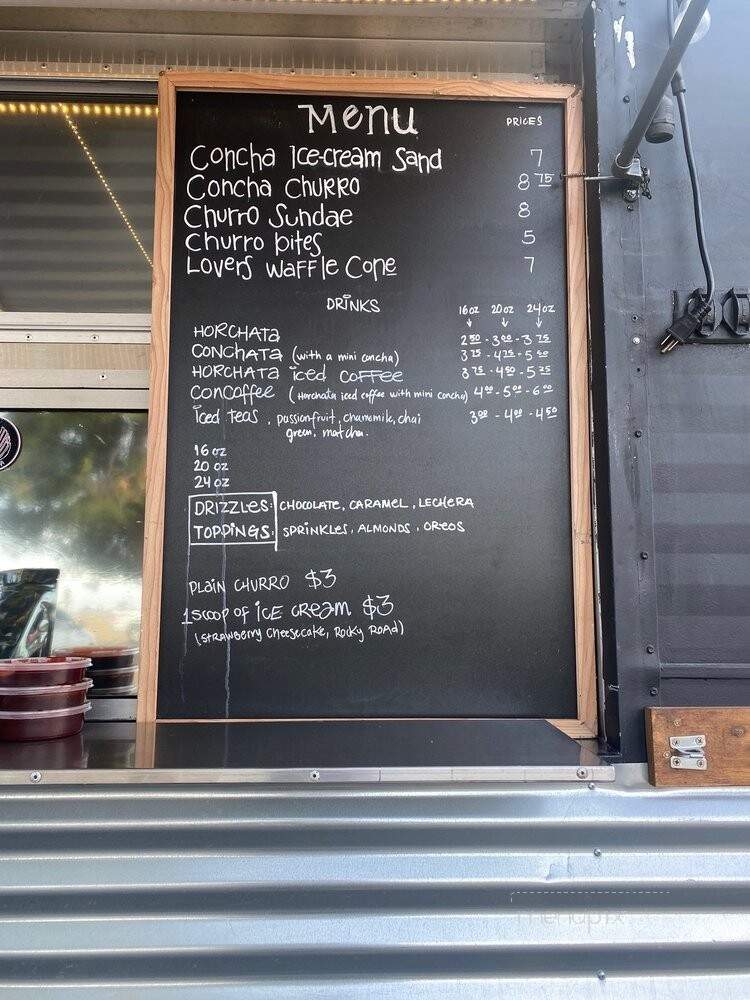 Menu PRICES
Concha Ice-cream Sand 7
Concha CHURRO 8 75
Churro Sundae 8
Churro bites 5
Lovers Waffle Cone 7
DRINKS 16oz 20oz 24oz
HORCHATA 2 50 - 3 00 - 3 75
CONCHATA (with a mini concha) 3 75 - 4 75 - 5 50
HORCHATA iced coffee 3 75 - 4 50 - 5 75
Concoffee (Horchata iced coffee with mini concha) 4 00 - 5 00 - 6 00
iced teas, passionfruit, chamomile, chai 3 00 - 4 00 - 4 50
green, matcha.
16 oz
20 oz
24 oz
DRIZZLES: CHOCOLATE, CARAMEL, LECHERA
TOPPINGS: SPRINKLES, ALMONDS, OREOS
PLAIN CHURRO $3
1 scoop of ICE CREAM $3
(STRAWBERRY CHEESECAKE, ROCKY ROAD)
menupix